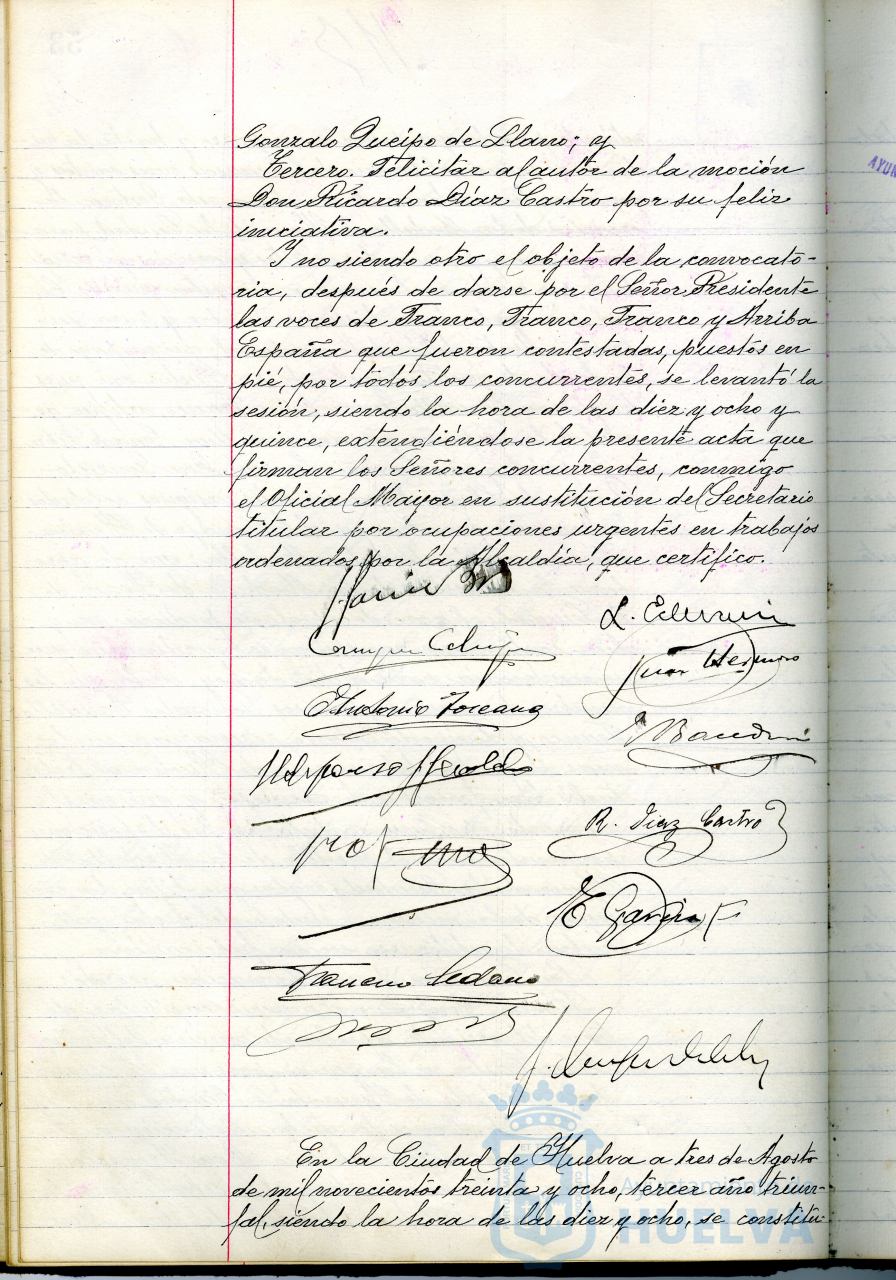 Gonzalo Queipo de Llano; y
Tercero. Felicitar al autor de la moción
Don Ricardo Díaz Castro por su feliz
iniciativa.
Y no siendo otro el objeto de la convocato-
ria, después de darse por el Señor Presidente
las voces de Franco, Franco, Franco y Arriba
España que fueron contestadas, puestos en
pié, por todos los concurrentes, se levantó la
sesión, siendo la hora de las diez y ocho y
quince, extendiéndose la presente acta que
firman los Señores concurrentes, conmigo
el Oficial Mayor en sustitución del Secretario
titular por ocupaciones urgentes en trabajos
ordenados por la Alcaldía, que certifico.
Antonio Toscano
R. Diaz Castro
E Garcia
Francisco Sedano
En la Ciudad de Huelva a tres de Agosto
de mil novecientos treinta y ocho, tercer año triun-
fal, siendo la hora de las diez y ocho, se constitu-
HUELVA
AYUN